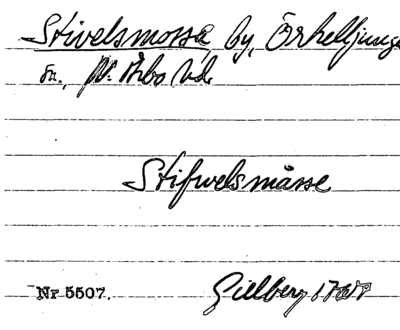 Stivelsmossa by, Örkelljunga
sn., N. Åsbo hd.
Stifwelsmåsse
Nr 5507. Gillberg